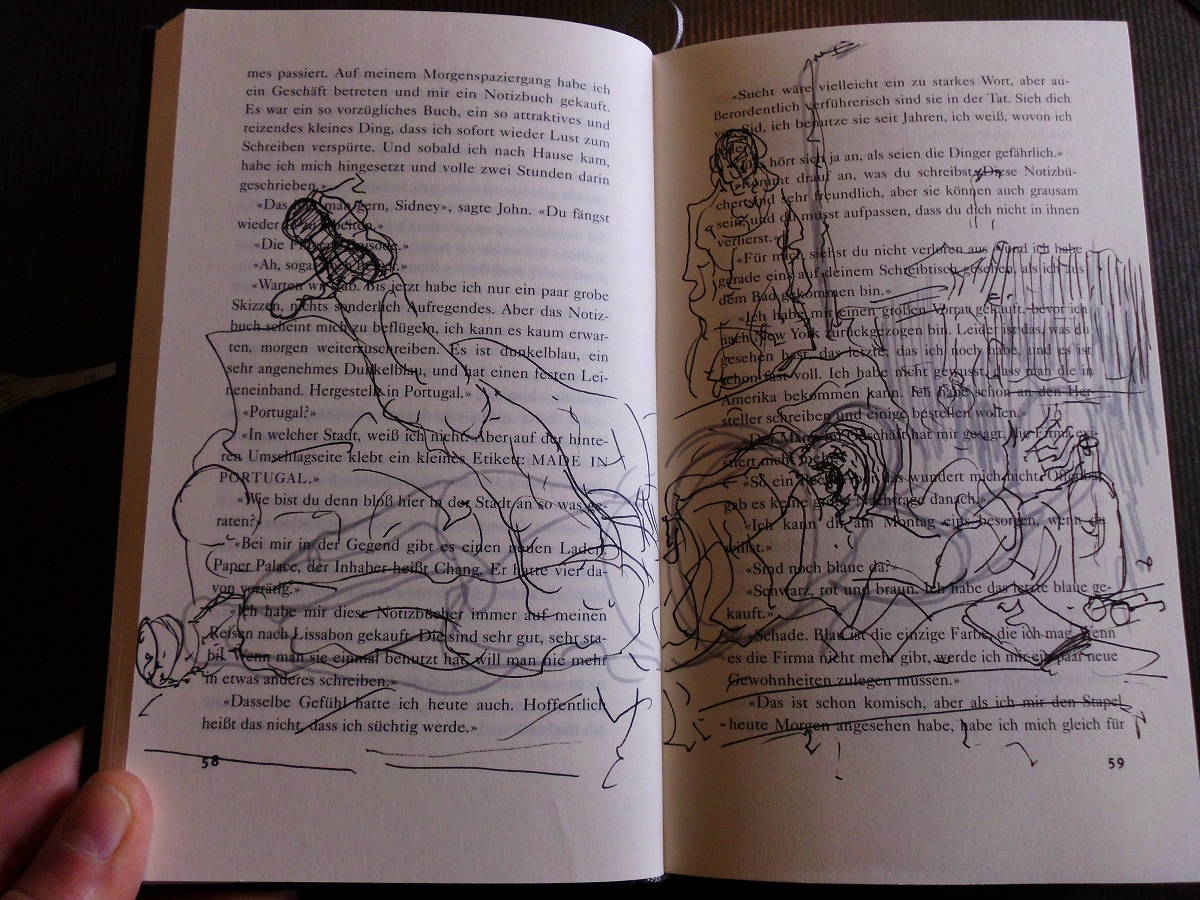 mes passiert. Auf meinem Morgenspaziergang habe ich
ein Geschäft betreten und mir ein Notizbuch gekauft.
Es war ein so vorzügliches Buch, ein so attraktives und
reizendes kleines Ding, dass ich sofort wieder Lust zum
Schreiben verspürte. Und sobald ich nach Hause kam,
habe ich mich hingesetzt und volle zwei Stunden darin
geschrieben.»
«Das man gern, Sidney», sagte John. «Du fängst
wieder zu arbeiten.»
«Die
«Ah, sogar
«Warten wir ab. Bis jetzt habe ich nur ein paar grobe
Skizzen, nichts sonderlich Aufregendes. Aber das Notiz-
buch scheint mich zu beflügeln, ich kann es kaum erwar-
ten, morgen weiterzuschreiben. Es ist dunkelblau, ein
sehr angenehmes Dunkelblau, und hat einen festen Lei-
neneinband. Hergestellt in Portugal.»
«Portugal?»
«In welcher Stadt, weiß ich nicht. Aber auf der hinte-
ren Umschlagseite klebt ein kleines Etikett: MADE IN
PORTUGAL.»
«Wie bist du denn bloß hier in der Stadt an so was ge-
raten?»
«Bei mir in der Gegend gibt es einen neuen Laden.
Paper Palace, der Inhaber heißt Chang. Er hatte vier da-
von vorrätig.»
«Ich habe mir diese Notizbücher immer auf meinen
Reisen nach Lissabon gekauft. Die sind sehr gut, sehr sta-
bil. Wenn man sie einmal benutzt hat, will man nie mehr
in etwas anderes schreiben.»
«Dasselbe Gefühl hatte ich heute auch. Hoffentlich
heißt das nicht, dass ich süchtig werde.»
58
«Sucht wäre vielleicht ein zu starkes Wort, aber au-
ßerordentlich verführerisch sind sie in der Tat. Sieh dich
vor, Sid, ich benutze sie seit Jahren, ich weiß, wovon ich
hört sich ja an, als seien die Dinger gefährlich.»
«Kommt drauf an, was du schreibst. Diese Notizbü-
cher sind sehr freundlich, aber sie können auch grausam
sein, und du musst aufpassen, dass du dich nicht in ihnen
verlierst.»
«Für mich siehst du nicht verloren aus und ich habe
gerade eins auf deinem Schreibtisch gesehen, als ich aus
dem Bad gekommen bin.»
«Ich habe mir einen großen Vorrat gekauft, bevor ich
nach New York zurückgezogen bin. Leider ist das, was du
gesehen hast, das letzte, das ich noch habe, und es ist
schon fast voll. Ich habe nicht gewusst, dass man die in
Amerika bekommen kann. Ich habe schon an den Her-
steller schreiben und einige bestellen wollen.»
«Der Mann im Geschäft hat mir gesagt, die Firma exi-
stiert nicht mehr.»
«So ein das wundert mich nicht. Offenbar
gab es keine große Nachfrage danach.»
«Ich kann dir am Montag eins besorgen, wenn du
willst.»
«Sind noch blaue da?»
«Schwarz, rot und braun. Ich habe das letzte blaue ge-
kauft.»
«Schade. Blau ist die einzige Farbe, die ich mag. Wenn
es die Firma nicht mehr gibt, werde ich mir ein paar neue
Gewohnheiten zulegen müssen.»
«Das ist schon komisch, aber als ich mir den Stapel
heute Morgen angesehen habe, habe ich mich gleich für
59